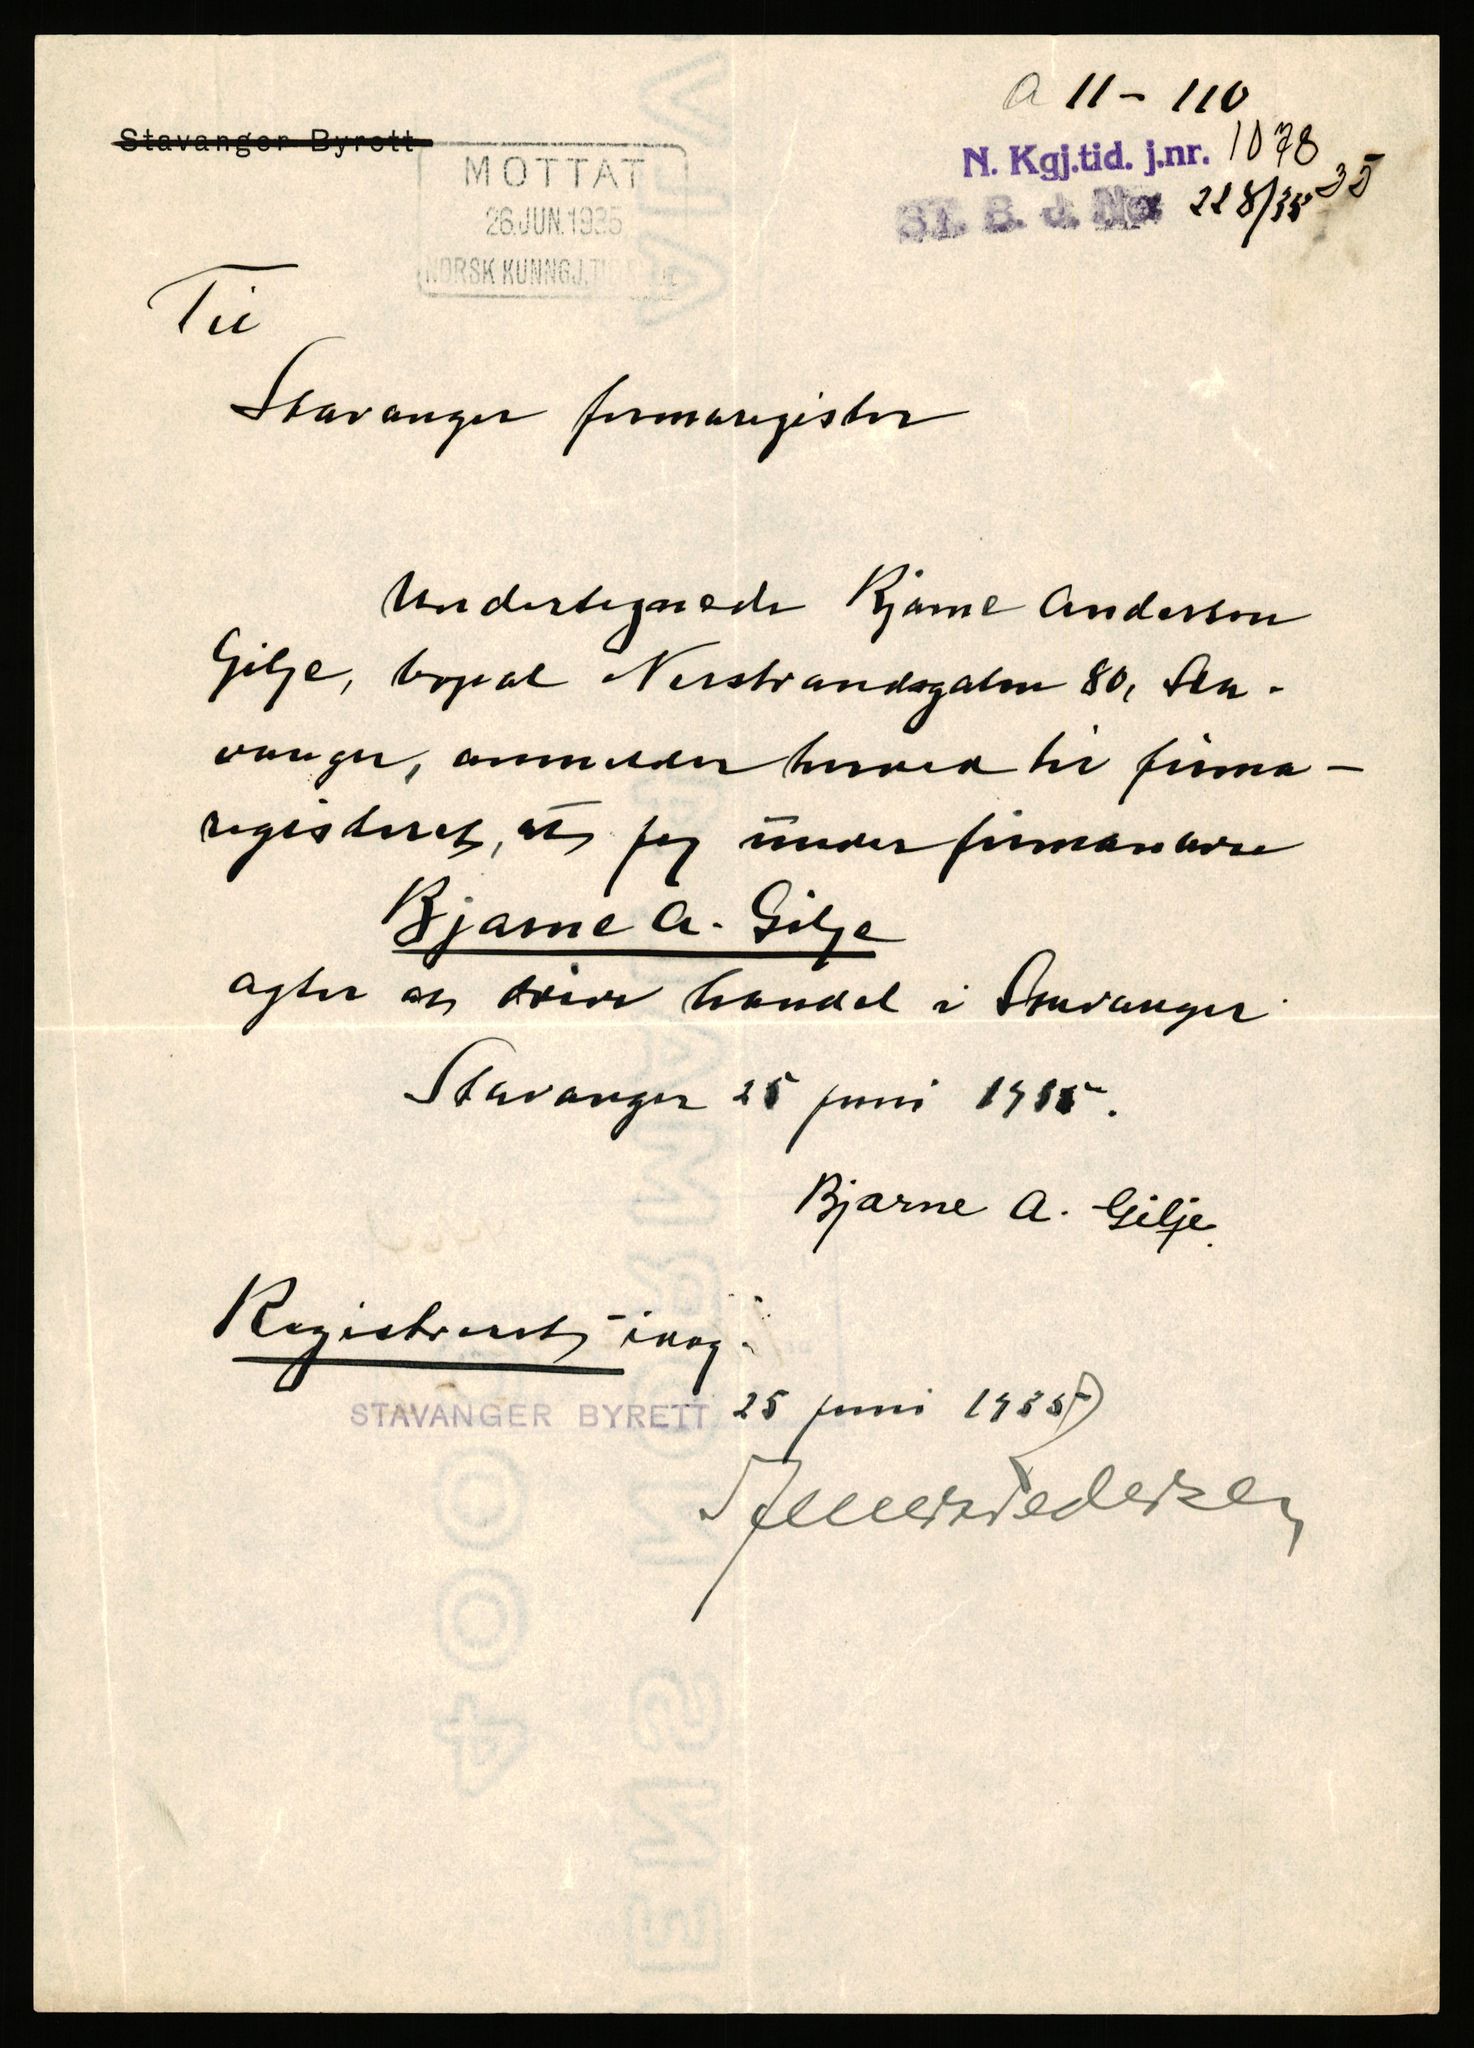 a 11 - 110
Stavanger Byrett
MOTTAT
26. JUN. 1935
NORSK KUNNGJ.TI
N. Kgj.tid. j.nr. 1078
35
ST. B. J. No 228/35
Til
Stavanger firmaregister
Undertegnede Bjarne Andersen
Gilje, bopæl Nerstrandsgaten 80, Sta-
vanger, anmelder herved til firma-
registeret, at jeg under firmanavne
Bjarne A. Gilje
agter at drive handel i Stavanger
Stavanger 25 juni 1935.
Bjarne A. Gilje.
Registreret idag.
STAVANGER BYRETT 25 juni 1935